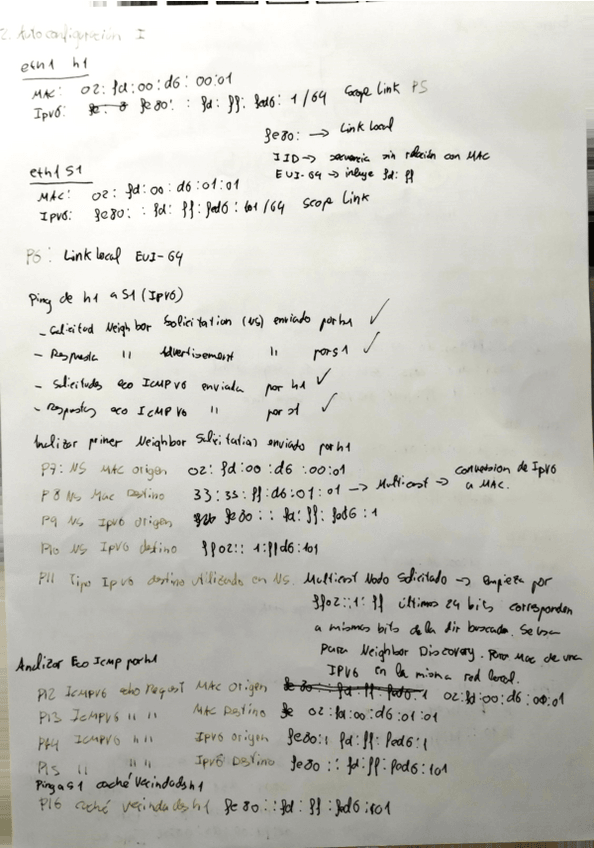 2. Autoconfiguración I
eth1 h1
MAC: 02:fd:00:d6:00:01
IPv6: fe80: : fd:ff:fed6:1/64 Scope Link P5
fe80: → Link Local
IID → secuencia sin relación con MAC
EUI-64 → incluye fd:ff
eth1 S1
MAC: 02:fd:00:d6:01:01
IPv6: fe80: : fd:ff:fed6:101/64 Scope Link
P6: Link local EUI-64
Ping de h1 a S1 (IPv6)
- Solicitud Neighbor Solicitation (NS) enviado por h1 ✓
- Respuesta " Advertisement " por s1 ✓
- Solicitudes eco ICMPv6 enviada por h1 ✓
- respuestas eco ICMPv6 " por s1 ✓
Analizar primer Neighbor Solicitation enviado por h1
P7: NS MAC origen 02:fd:00:d6:00:01
P8 NS Mac Destino 33:33:ff:d6:01:01 → Multicast → conversion de IPv6 a MAC.
P9 NS IPv6 origen fe80: : fd:ff:fed6:1
P10 NS IPv6 destino ff02::1:ffd6:101
P11 Tipo IPv6 destino utilizado en NS. Multicast Nodo Solicitado → empieza por
ff02::1:ff últimos 24 bits corresponden
a mismos bits de la dir buscada. Se usa
para Neighbor Discovery. Para Mac de una
IPv6 en la misma red local.
Analizar Eco ICMP por h1
P12 ICMPv6 echo Request MAC Origen fe80::fd:ff:fed6:1 02:fd:00:d6:00:01
P13 ICMPv6 " " MAC Destino fe 02:fd:00:d6:01:01
P14 ICMPv6 " " IPv6 origen fe80:: fd:ff:fed6:1
P15 " " IPv6 Destino fe80 :: fd:ff:fed6:101
Ping a S1 caché vecindades h1
P16 caché vecindades h1 fe80: :fd:ff:fed6:101